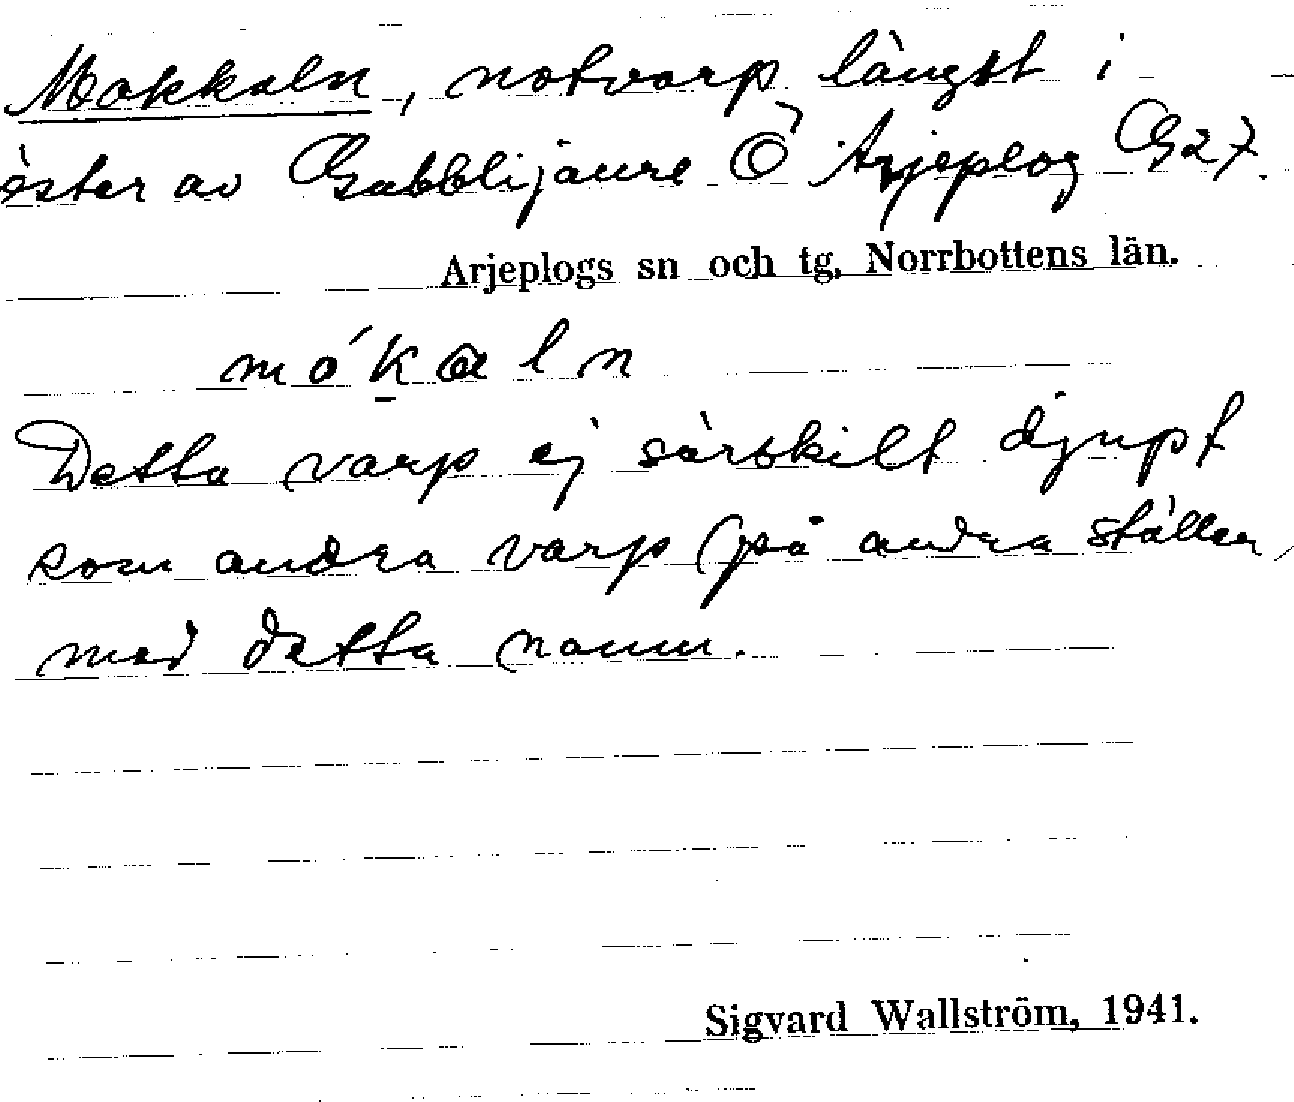 Mokkaln, notvarp längst i
öster av Gabblijaure Ö Arjeplog G27.
Arjeplogs sn och tg, Norrbottens län.
mókaln
Detta varp ej särskilt djupt
som andra varp på andra ställen,
med detta namn.
Sigvard Wallström, 1941.